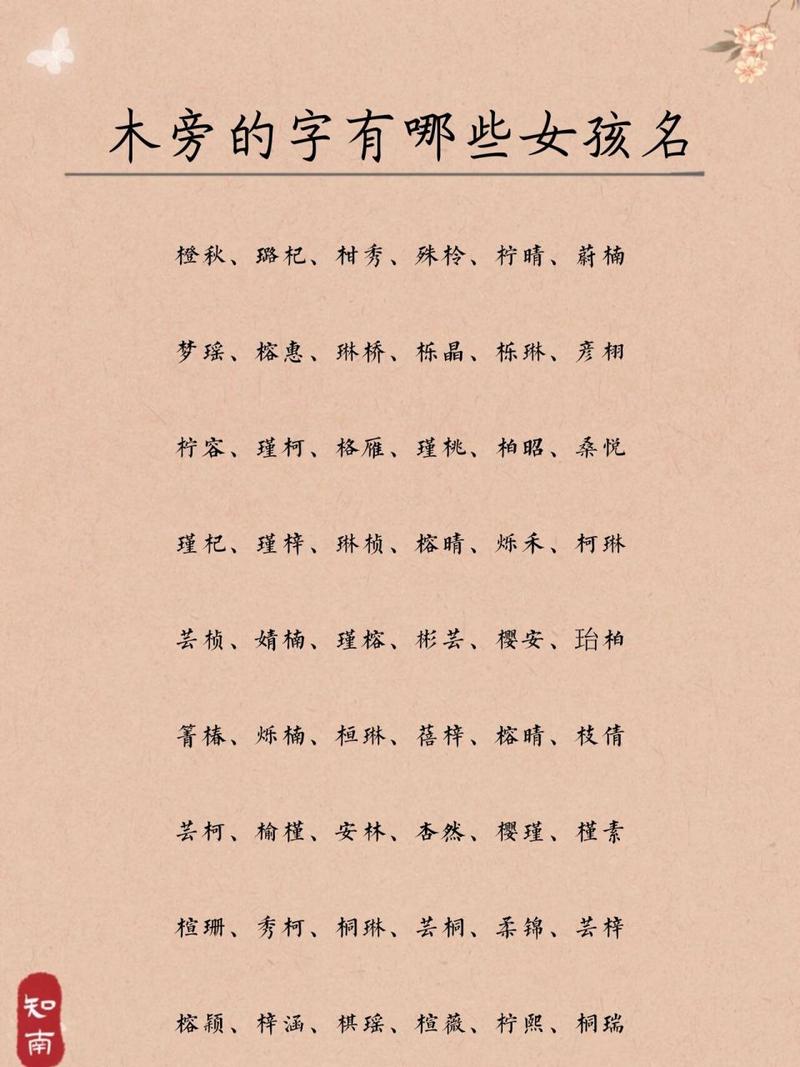 木旁的字有哪些女孩名
橙秋、璐杞、柑秀、殊柃、柠晴、蔚楠
梦瑶、榕惠、琳桥、栎晶、栎琳、彦栩
柠容、瑾柯、格雁、瑾桃、柏昭、桑悦
瑾杞、瑾梓、琳桢、榕晴、烁禾、柯琳
芸桢、婧楠、瑾榕、彬芸、樱安、珆柏
箐椿、烁楠、桓琳、蓓梓、榕晴、枝倩
芸柯、榆槿、安林、杏然、樱瑾、槿素
楦珊、秀柯、桐琳、芸桐、柔锦、芸梓
榕颖、梓涵、棋瑶、楦薇、柠熙、桐瑞
知南